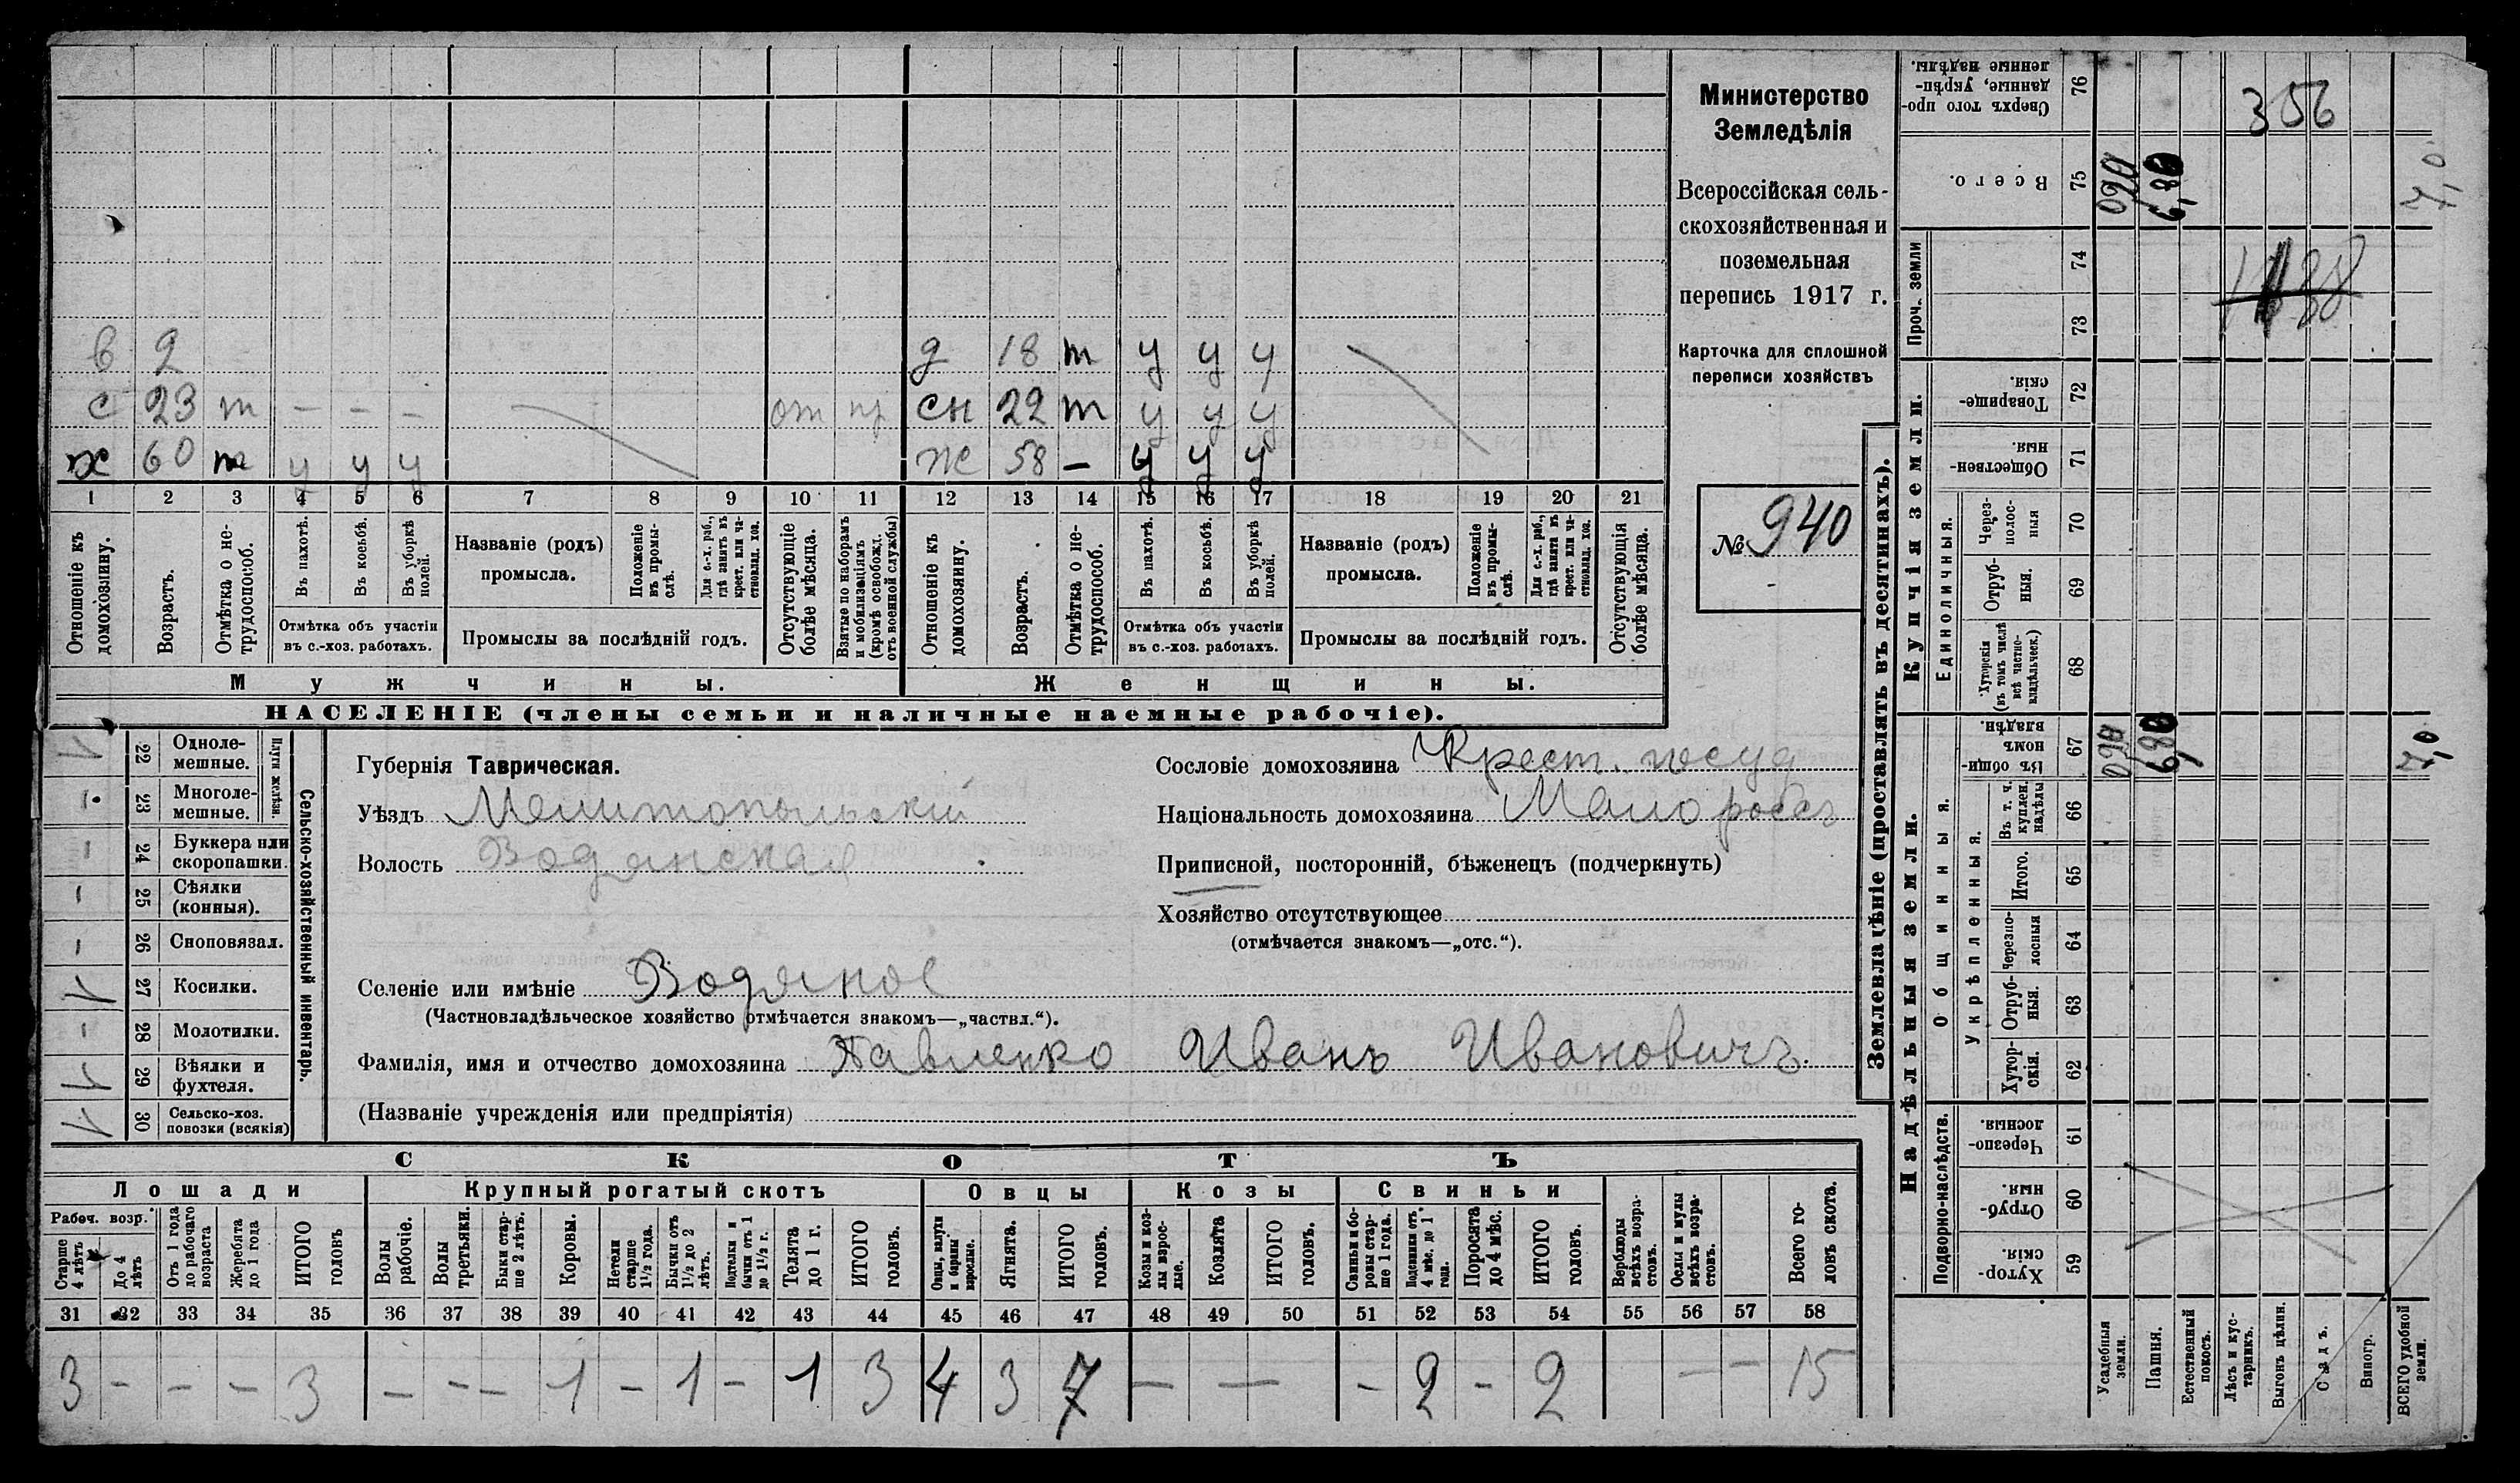 Министерство
Земледѣлія
Всероссійская сель-
скохозяйственная и
поземельная
перепись 1917 г.
Карточка для сплошной
переписи хозяйствъ
№ 940
в 2 д 18 т у у у
с 23 т – – – от пр сн 22 т у у у
х 60 т у у у ж 58 – у у у
1 2 3 4 5 6 7 8 9 10 11 12 13 14 15 16 17 18 19 20 21
Отношеніе къ домохозяину.
Возрастъ.
Отмѣтка о не-трудоспособ.
Въ пахотѣ.
Въ косьбѣ.
Въ уборкѣ полей.
Отмѣтка объ участіи
въ с.-хоз. работахъ.
Названіе (родъ)
промысла.
Положеніе въ промы-слѣ.
Для с.-х. раб., гдѣ занятъ въ крест. или ча-стновлад. хоз.
Промыслы за послѣдній годъ.
Отсутствующіе болѣе мѣсяца.
Взятые по наборамъ и мобилизаціямъ (кромѣ освобожд. отъ военной службы)
Отношеніе къ домохозяину.
Возрастъ.
Отмѣтка о не-трудоспособ.
Въ пахотѣ.
Въ косьбѣ.
Въ уборкѣ полей.
Отмѣтка объ участіи
въ с.-хоз. работахъ.
Названіе (родъ)
промысла.
Положеніе въ промы-слѣ.
Для с.-х. раб., гдѣ занята въ крест. или ча-стновлад. хоз.
Промыслы за послѣдній годъ.
Отсутствующія болѣе мѣсяца.
Мужчины. Женщины.
НАСЕЛЕНІЕ (члены семьи и наличные наемные рабочіе).
Сельско-хозяйственный инвентарь.
Плуги желѣзн.
1 22 Одноле-мешные.
– 23 Многоле-мешные.
– 24 Буккера или скоропашки.
– 25 Сѣялки (конныя).
– 26 Сноповязал.
1 27 Косилки.
– 28 Молотилки.
1 29 Вѣялки и фухтеля.
1 30 Сельско-хоз. повозки (всякія)
Губернія Таврическая.
Уѣздъ Мелитопольскій
Волость Водянская
Сословіе домохозяина Крест. госуд
Національность домохозяина Малоросъ
Приписной, посторонній, бѣженецъ (подчеркнуть)
Хозяйство отсутствующее
(отмѣчается знакомъ—„отс.“).
Селеніе или имѣніе Водяное
(Частновладѣльческое хозяйство отмѣчается знакомъ—„частвл.“).
Фамилія, имя и отчество домохозяина Павленко Иванъ Ивановичъ.
(Названіе учрежденія или предпріятія)
СКОТЪ
Лошади Крупный рогатый скотъ Овцы Козы Свиньи
Рабоч. возр.
Старше 4 лѣтъ
До 4 лѣтъ
Отъ 1 года до рабочаго возраста
Жеребята до 1 года
ИТОГО головъ
Волы рабочіе.
Волы третьяки.
Быки стар-ше 2 лѣтъ.
Коровы.
Нетели старше 1½ года.
Бычки отъ 1½ до 2 лѣтъ.
Подтелки и бычки отъ 1 до 1½ г.
Телята до 1 г.
ИТОГО головъ.
Овцы, валухи и бараны взрослые.
Ягнята.
ИТОГО головъ.
Козы и коз-лы взрос-лые.
Козлята
ИТОГО головъ.
Свиньи и бо-ровы стар-ше 1 года.
Подсвинки отъ 4 мѣс. до 1 года.
Поросята до 4 мѣс.
ИТОГО головъ.
Верблюды всѣхъ возра-стовъ.
Ослы и мулы всѣхъ возра-стовъ.
Всего го-ловъ скота.
31 32 33 34 35 36 37 38 39 40 41 42 43 44 45 46 47 48 49 50 51 52 53 54 55 56 57 58
3 – – – 3 – – – 1 – 1 – 1 3 4 3 7 – – – 2 – 2 – – 15
Землевладѣніе (проставлять въ десятинахъ).
Купчія земли.
Надѣльныя земли.
Сверхъ того про-данные, укрѣп-ленные надѣлы. 76 356
Всего. 75 0,20 6,80 7,0
Проч. земли 74
73
Товарище-скія. 72
Обществен-ныя 71
Единоличныя.
Через-полос-ныя 70
Отруб-ныя. 69
Хуторскія (въ томъ числѣ всѣ частно-владѣльческ.) 68
Общинныя.
Въ общин-номъ владѣн. 67 0,20 6,80 7,0
Укрѣпленныя.
Въ т. ч. куплен. надѣлы 66
Итого. 65
Черезпо-лосныя 64
Отруб-ныя. 63
Хутор-скія. 62
Подворно-наслѣдств.
Черезпо-лосныя. 61
Отруб-ныя. 60
Хутор-скія 59
Усадебныя земли.
Пашня.
Естественный покосъ.
Лѣсъ и кус-тарникъ.
Выгонъ цѣлин.
Садъ.
Виногр.
ВСЕГО удобной земли.